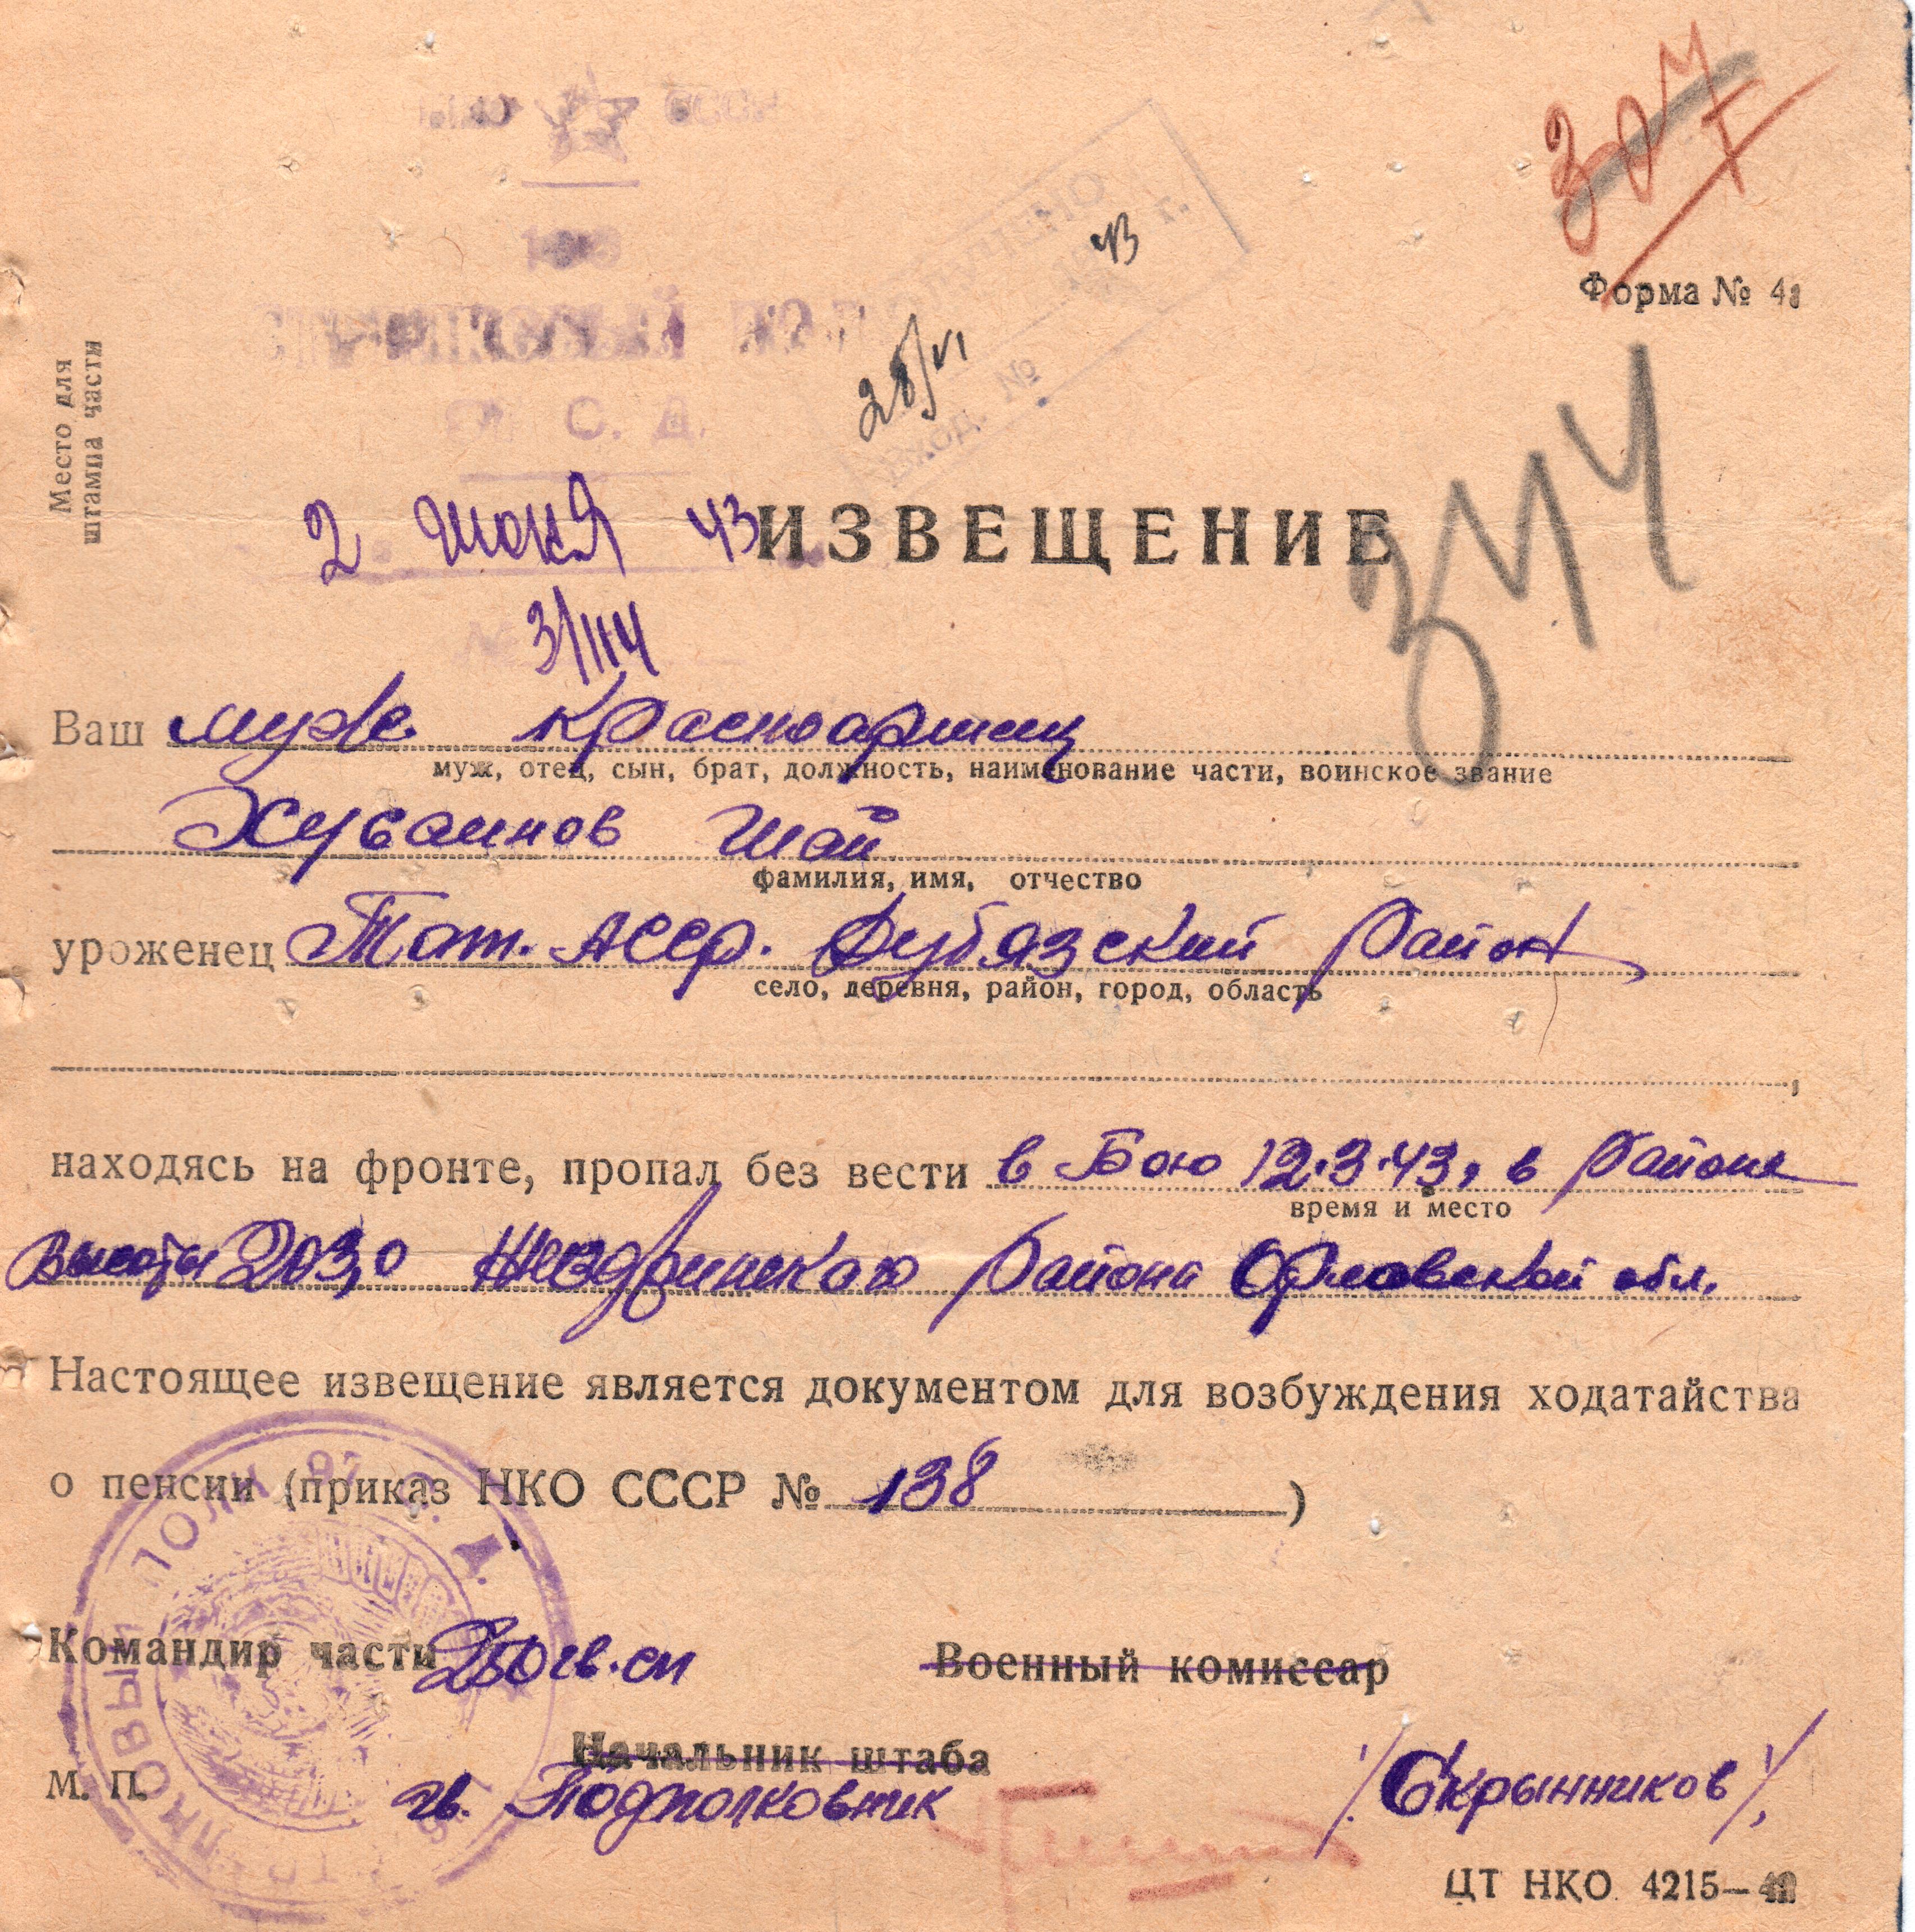 307
43 г.
Форма № 4
СТРЕЛКОВЫЙ ПОЛК
28/VI
Вход. №
С. Д.
Место для
штампа части
2 июня 43
ИЗВЕЩЕНИЕ
344
3/1114
Ваш муж. красноармеец
муж, отец, сын, брат, должность, наименование части, воинское звание
Хусаинов Шай
фамилия, имя, отчество
уроженец Тат. АССР. Дубязский район
село, деревня, район, город, область
находясь на фронте, пропал без вести в бою 12.3.43, в районе
время и место
высоты 203,0 Жиздринского района Орловской обл.
Настоящее извещение является документом для возбуждения ходатайства
о пенсии (приказ НКО СССР № 138)
ПОЛК 97 С. Д.
Командир части 250 гв. сп
Военный комиссар
Начальник штаба
М. П.
гв. Подполковник /Скрынников/
ЦТ НКО 4215—42